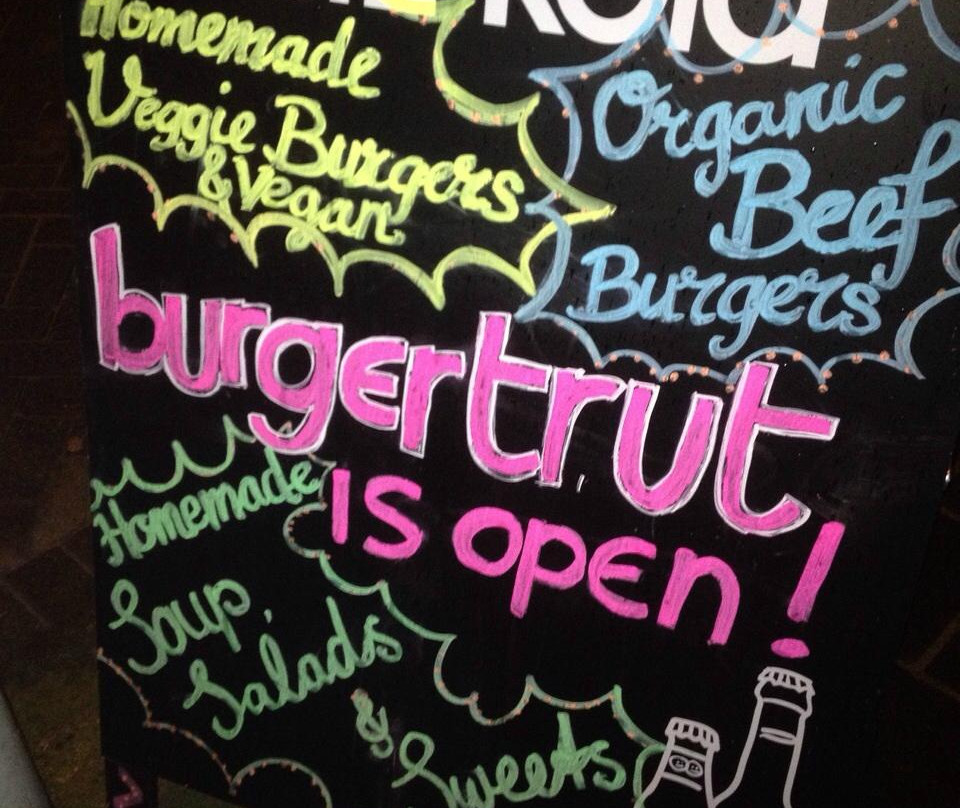 Homemade
Veggie Burgers
& Vegan
Organic
Beef
Burgers
burgertrut
is open!
Homemade
Soup,
Salads
& Sweets